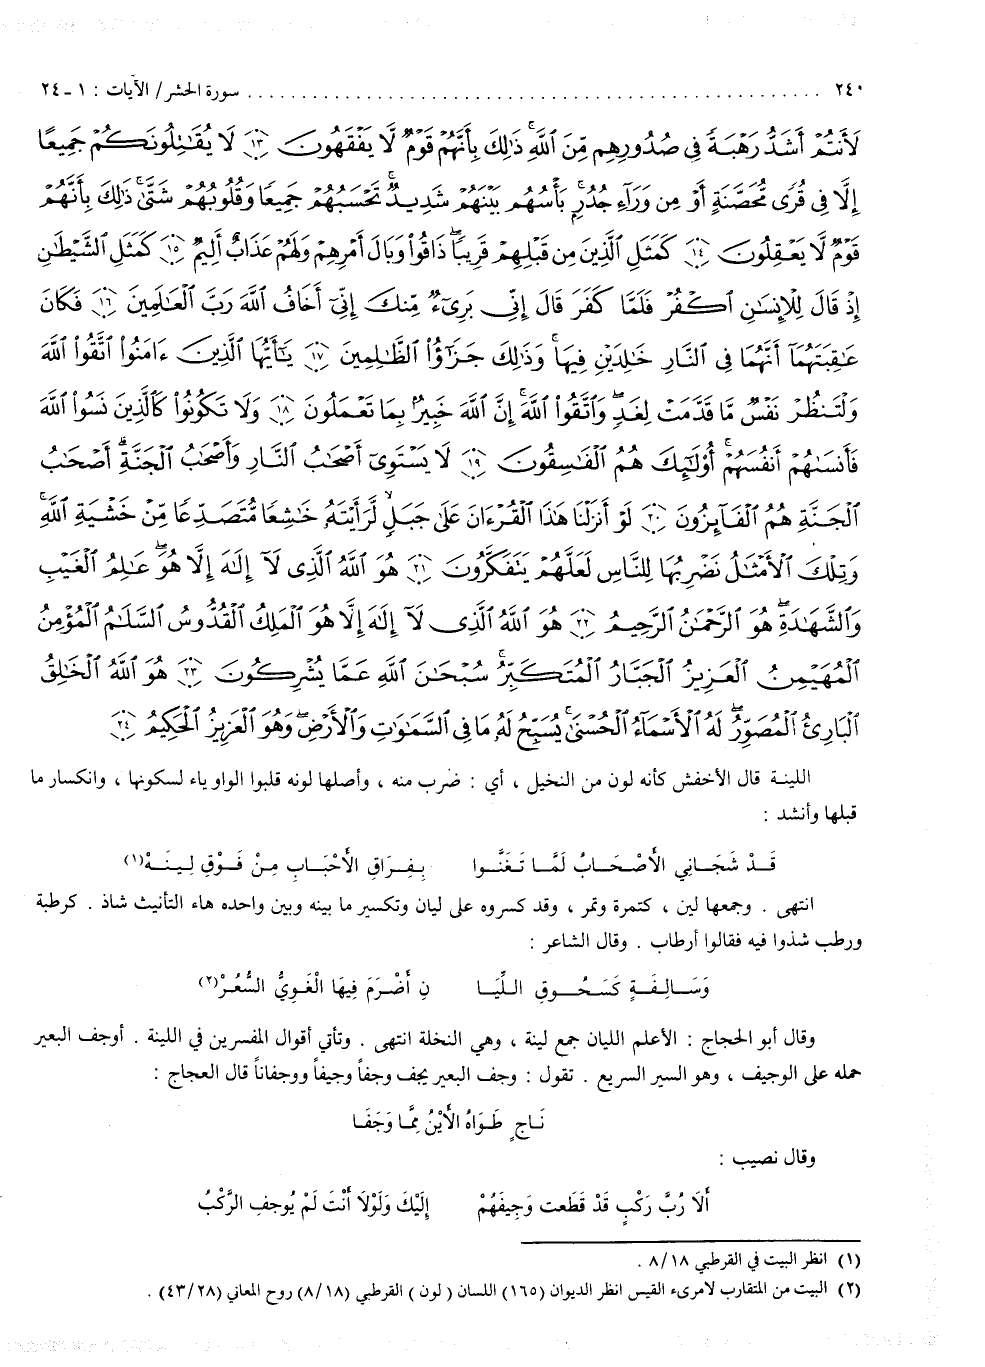 ٢٤٠ ............................................................ سورة الحشر / الآيات : ١ - ٢٤
لَأَنتُمْ أَشَدُّ رَهْبَةً فِى صُدُورِهِم مِّنَ ٱللَّهِ ۚ ذَٰلِكَ بِأَنَّهُمْ قَوْمٌ لَّا يَفْقَهُونَ ١٣ لَا يُقَٰتِلُونَكُمْ جَمِيعًا
إِلَّا فِى قُرًى مُّحَصَّنَةٍ أَوْ مِن وَرَآءِ جُدُرٍ ۚ بَأْسُهُم بَيْنَهُمْ شَدِيدٌ ۚ تَحْسَبُهُمْ جَمِيعًا وَقُلُوبُهُمْ شَتَّىٰ ۚ ذَٰلِكَ بِأَنَّهُمْ
قَوْمٌ لَّا يَعْقِلُونَ ١٤ كَمَثَلِ ٱلَّذِينَ مِن قَبْلِهِمْ قَرِيبًا ۖ ذَاقُوا۟ وَبَالَ أَمْرِهِمْ وَلَهُمْ عَذَابٌ أَلِيمٌ ١٥ كَمَثَلِ ٱلشَّيْطَٰنِ
إِذْ قَالَ لِلْإِنسَٰنِ ٱكْفُرْ فَلَمَّا كَفَرَ قَالَ إِنِّى بَرِىٓءٌ مِّنكَ إِنِّىٓ أَخَافُ ٱللَّهَ رَبَّ ٱلْعَٰلَمِينَ ١٦ فَكَانَ
عَٰقِبَتَهُمَآ أَنَّهُمَا فِى ٱلنَّارِ خَٰلِدَيْنِ فِيهَا ۚ وَذَٰلِكَ جَزَٰٓؤُا۟ ٱلظَّٰلِمِينَ ١٧ يَٰٓأَيُّهَا ٱلَّذِينَ ءَامَنُوا۟ ٱتَّقُوا۟ ٱللَّهَ
وَلْتَنظُرْ نَفْسٌ مَّا قَدَّمَتْ لِغَدٍ ۖ وَٱتَّقُوا۟ ٱللَّهَ ۚ إِنَّ ٱللَّهَ خَبِيرٌۢ بِمَا تَعْمَلُونَ ١٨ وَلَا تَكُونُوا۟ كَٱلَّذِينَ نَسُوا۟ ٱللَّهَ
فَأَنسَىٰهُمْ أَنفُسَهُمْ ۚ أُو۟لَٰٓئِكَ هُمُ ٱلْفَٰسِقُونَ ١٩ لَا يَسْتَوِىٓ أَصْحَٰبُ ٱلنَّارِ وَأَصْحَٰبُ ٱلْجَنَّةِ ۚ أَصْحَٰبُ
ٱلْجَنَّةِ هُمُ ٱلْفَآئِزُونَ ٢٠ لَوْ أَنزَلْنَا هَٰذَا ٱلْقُرْءَانَ عَلَىٰ جَبَلٍ لَّرَأَيْتَهُۥ خَٰشِعًا مُّتَصَدِّعًا مِّنْ خَشْيَةِ ٱللَّهِ ۚ
وَتِلْكَ ٱلْأَمْثَٰلُ نَضْرِبُهَا لِلنَّاسِ لَعَلَّهُمْ يَتَفَكَّرُونَ ٢١ هُوَ ٱللَّهُ ٱلَّذِى لَآ إِلَٰهَ إِلَّا هُوَ ۖ عَٰلِمُ ٱلْغَيْبِ
وَٱلشَّهَٰدَةِ ۖ هُوَ ٱلرَّحْمَٰنُ ٱلرَّحِيمُ ٢٢ هُوَ ٱللَّهُ ٱلَّذِى لَآ إِلَٰهَ إِلَّا هُوَ ٱلْمَلِكُ ٱلْقُدُّوسُ ٱلسَّلَٰمُ ٱلْمُؤْمِنُ
ٱلْمُهَيْمِنُ ٱلْعَزِيزُ ٱلْجَبَّارُ ٱلْمُتَكَبِّرُ ۚ سُبْحَٰنَ ٱللَّهِ عَمَّا يُشْرِكُونَ ٢٣ هُوَ ٱللَّهُ ٱلْخَٰلِقُ
ٱلْبَارِئُ ٱلْمُصَوِّرُ ۖ لَهُ ٱلْأَسْمَآءُ ٱلْحُسْنَىٰ ۚ يُسَبِّحُ لَهُۥ مَا فِى ٱلسَّمَٰوَٰتِ وَٱلْأَرْضِ ۖ وَهُوَ ٱلْعَزِيزُ ٱلْحَكِيمُ ٢٤
اللينة قال الأخفش كأنه لون من النخيل ، أي : ضرب منه ، وأصلها لونه قلبوا الواو ياء لسكونها ، وانكسار ما
قبلها وأنشد :
قَدْ شَجَانِي الْأَصْحَابُ لَمَّا تَغَنَّوا بِفِرَاقِ الْأَحْبَابِ مِنْ فَوْقِ لِينَهْ(١)
انتهى . وجمعها لين ، كتمرة وتمر ، وقد كسروه على ليان وتكسير ما بينه وبين واحده هاء التأنيث شاذ . كرطبة
ورطب شذوا فيه فقالوا أرطاب . وقال الشاعر :
وَسَالِفَةٍ كَسَحُوقِ اللِّيَا نِ أَضْرَمَ فِيهَا الْغَوِيُّ السُّعُرْ(٢)
وقال أبو الحجاج : الأعلم الليان جمع لينة ، وهي النخلة انتهى . وتأتي أقوال المفسرين في اللينة . أوجف البعير
حمله على الوجيف ، وهو السير السريع . تقول : وجف البعير يجف وجفاً وجيفاً ووجفاناً قال العجاج :
نَاجٍ طَوَاهُ الْأَيْنُ مِمَّا وَجَفَا
وقال نصيب :
أَلَا رُبَّ رَكْبٍ قَدْ قَطَعت وَجِيفَهُمْ إِلَيْكَ وَلَوْلَا أَنْتَ لَمْ يُوجفِ الرَّكْبُ
(١) انظر البيت في القرطبي ٨/١٨ .
(٢) البيت من المتقارب لامرىء القيس انظر الديوان (١٦٥) اللسان ( لون ) القرطبي (٨/١٨) روح المعاني (٤٣/٢٨) .